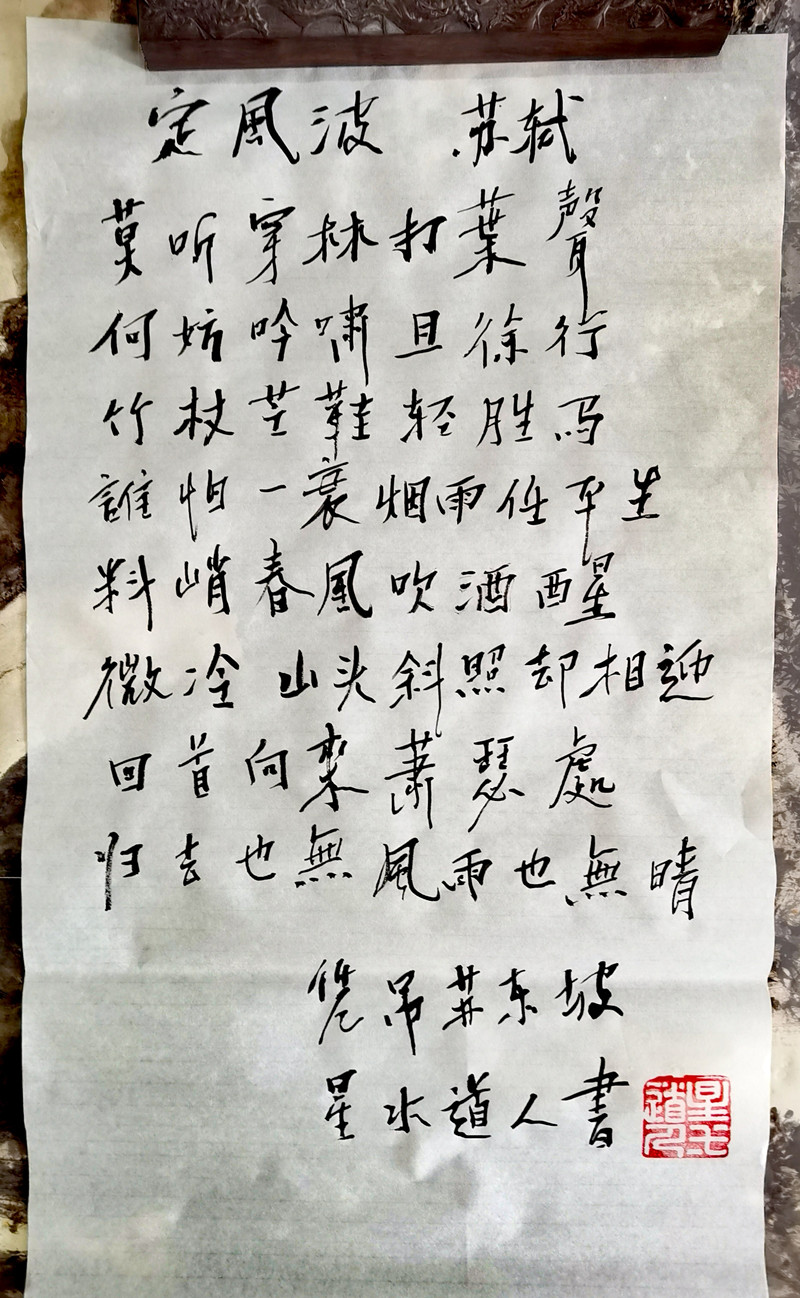 定風波 苏轼
莫听穿林打葉聲
何妨吟嘯且徐行
竹杖芒鞋轻胜马
誰怕一衰烟雨任平生
料峭春風吹酒醒
微冷 山头斜照却相迎
回首向來蕭瑟處
归去也無風雨也無晴
凭吊苏东坡
星水道人書
星水道人